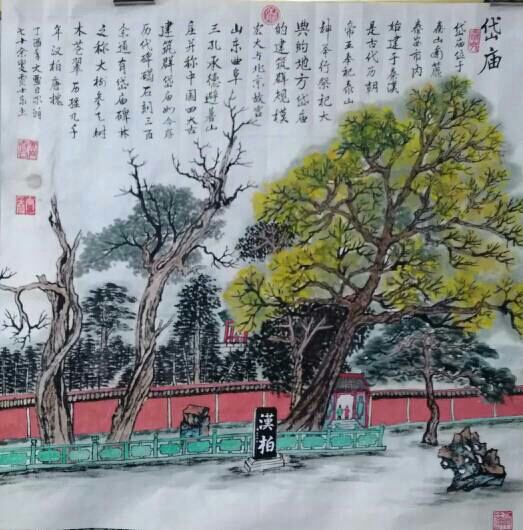 岱庙
岱庙位于
泰山南麓
泰安市内
始建于秦汉
是古代历朝
帝王奉祀泰山
神举行祭祀大
典的地方岱庙
的建筑群规模
宏大与北京故宫
山东曲阜
三孔承德避暑山
庄并称中国四大古
建筑群岱庙如今存
历代碑碣石刻三百
余通有岱庙碑林
之称大树参天树
木苍翠
年汉柏唐槐
丁酉年大雪日
七十余叟
漢柏